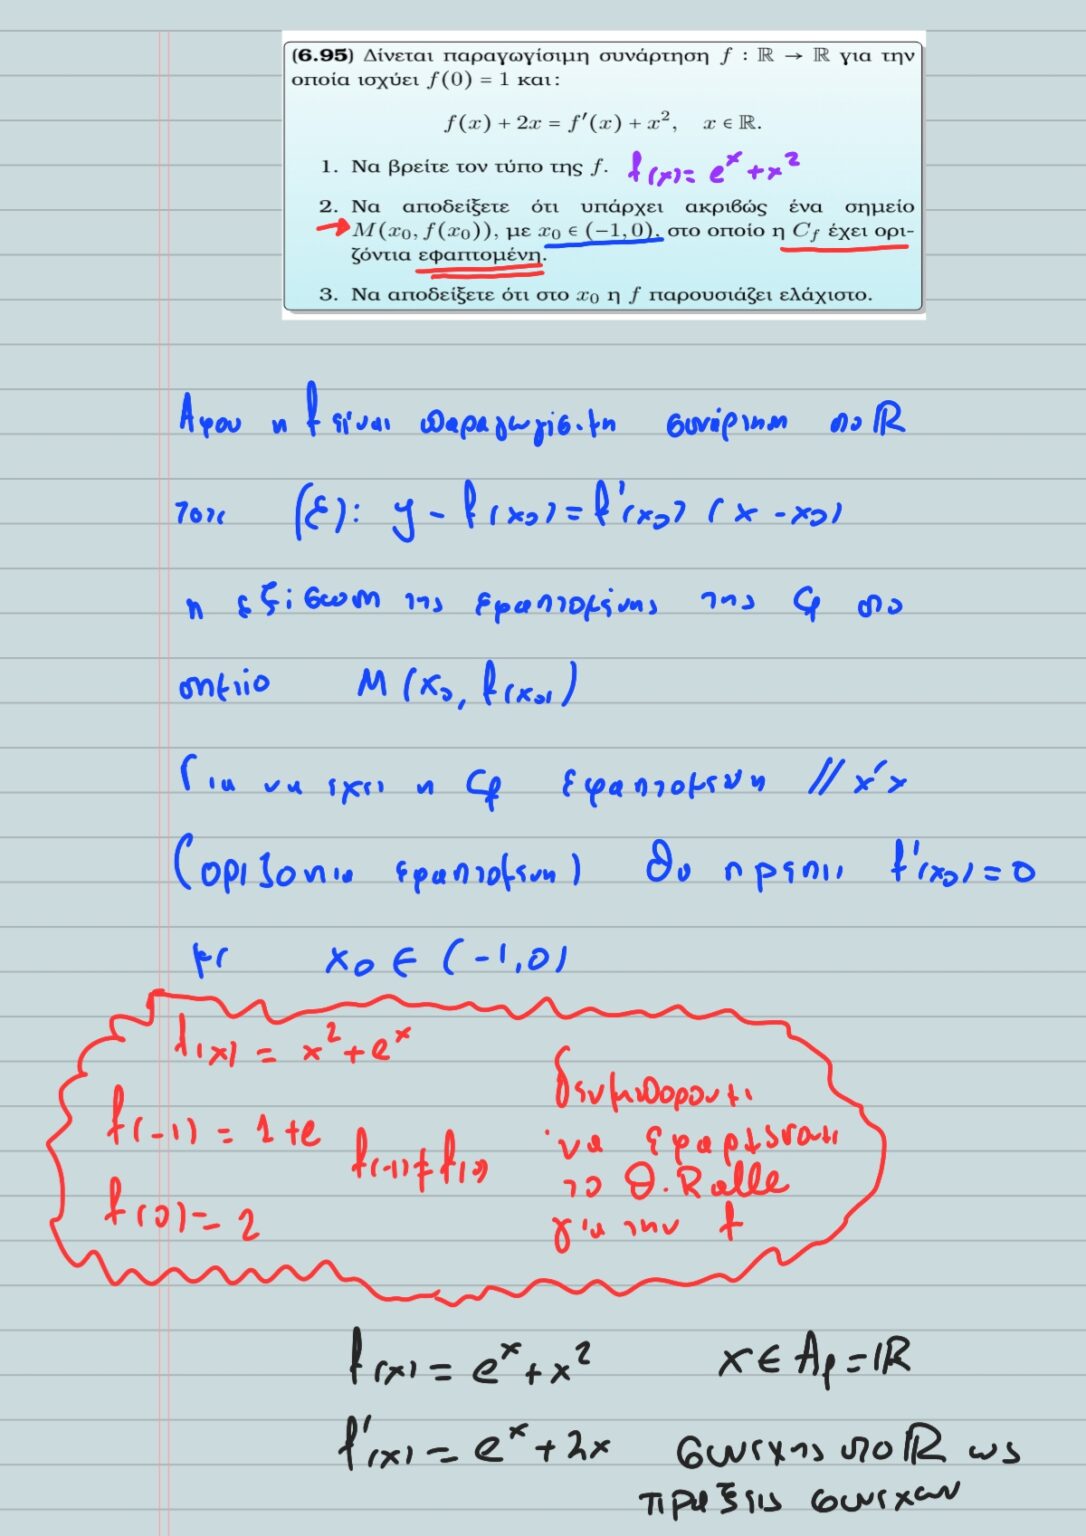 (6.95) Δίνεται παραγωγίσιμη συνάρτηση f : ℝ → ℝ για την
οποία ισχύει f(0) = 1 και:
f(x) + 2x = f′(x) + x², x ∈ ℝ.
1. Να βρείτε τον τύπο της f. f(x) = e^x + x²
2. Να αποδείξετε ότι υπάρχει ακριβώς ένα σημείο
M(x₀, f(x₀)), με x₀ ∈ (−1, 0), στο οποίο η C_f έχει ορι-
ζόντια εφαπτομένη.
3. Να αποδείξετε ότι στο x₀ η f παρουσιάζει ελάχιστο.
Αφου η f είναι παραγωγίσιμη συνάρτηση στο ℝ
τοτε (ε): y - f(x₀) = f'(x₀) (x - x₀)
η εξίσωση της εφαπτομένης της C_f στο
σημείο M(x₀, f(x₀))
Για να έχει η C_f εφαπτομένη // x'x
(οριζοντια εφαπτομένη) θα πρέπει f'(x₀) = 0
με x₀ ∈ (-1,0)
f(x) = x² + e^x
f(-1) = 1+e
f(0) = 2
f(-1) ≠ f(0)
δεν μπορουμε
να εφαρμόσουμε
το Θ. Rolle
για την f
f(x) = e^x + x² x ∈ A_f = ℝ
f'(x) = e^x + 2x συνεχης στο ℝ ως
πραξεις συνεχων